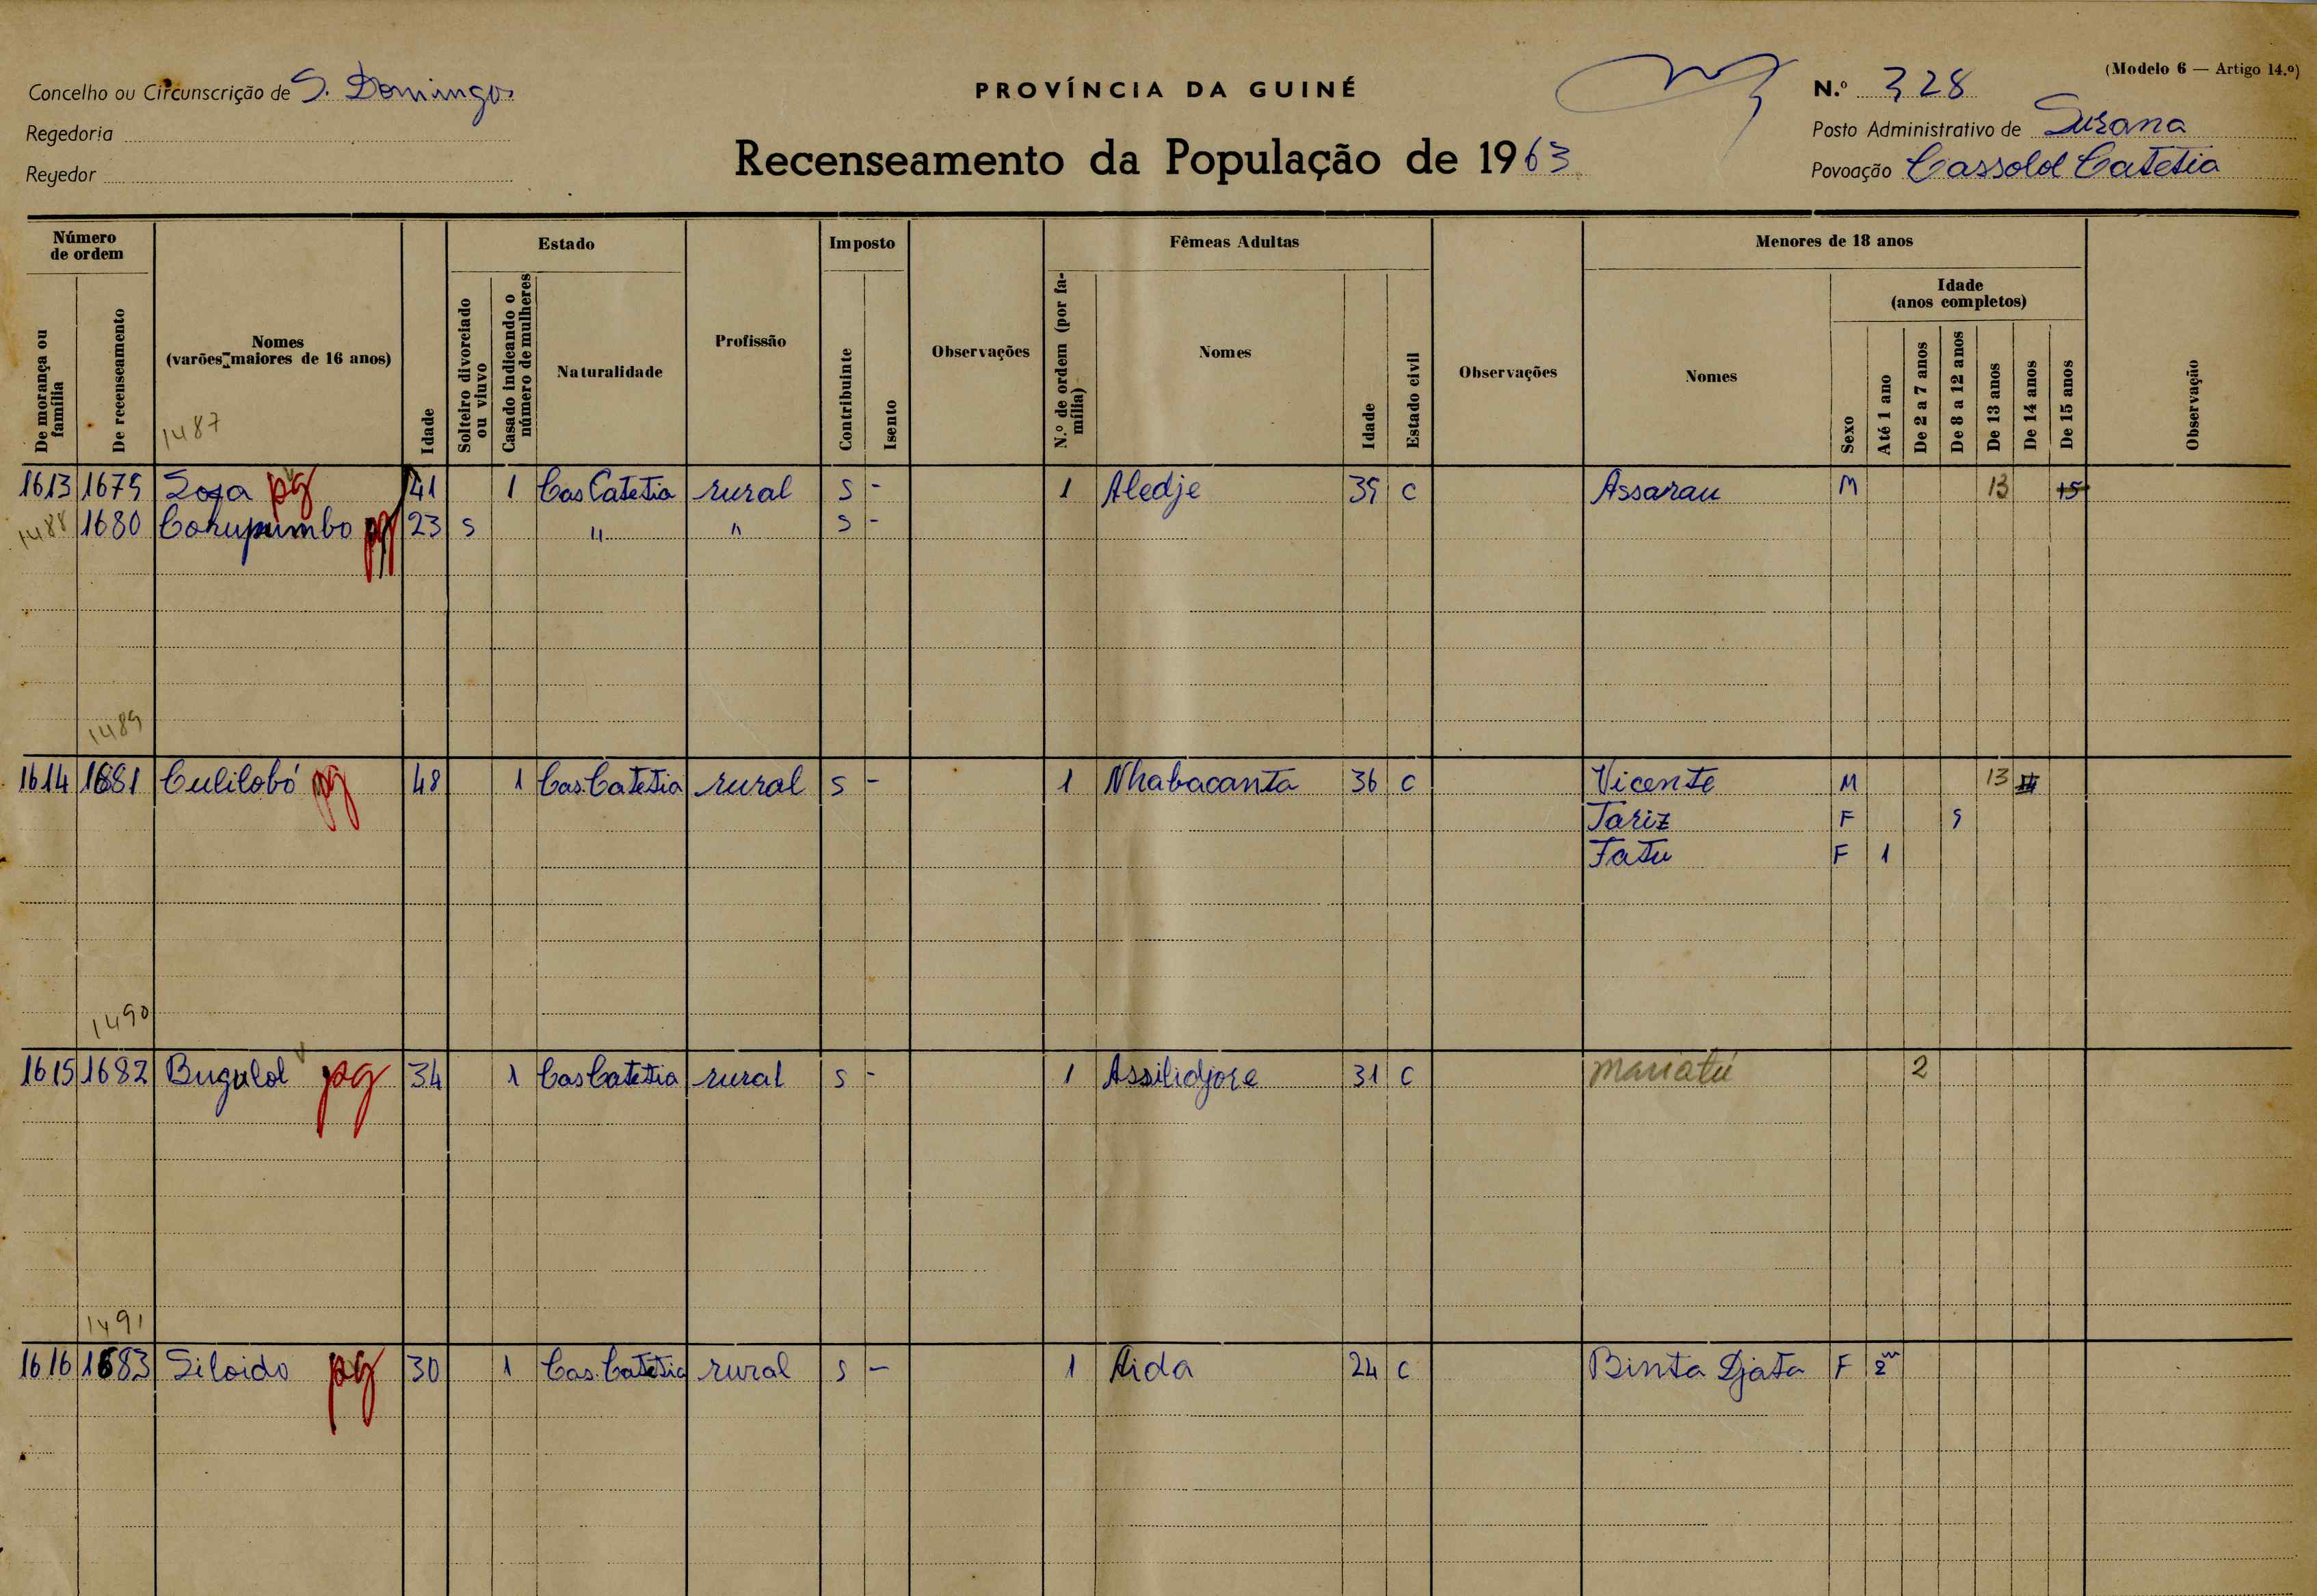 (Modelo 6 — Artigo 14.º)
Concelho ou Circunscrição de S. Domingos
PROVÍNCIA DA GUINÉ
N.º 328
Regedoria
Posto Administrativo de Susana
Recenseamento da População de 1963
Reyedor
Povoação Cassolol Catetia
Número de ordem
Estado
Imposto
Fêmeas Adultas
Menores de 18 anos
De morança ou família
De recenseamento
Nomes
(varões maiores de 16 anos)
Idade
Solteiro divorciado ou viuvo
Casado indicando o número de mulheres
Naturalidade
Profissão
Contribuinte
Isento
Observações
N.º de ordem (por família)
Nomes
Idade
Estado civil
Observações
Nomes
Sexo
Idade
(anos completos)
Até 1 ano
De 2 a 7 anos
De 8 a 12 anos
De 13 anos
De 14 anos
De 15 anos
Observação
1487
1613 1679 pg 41 1 Cas Catetia rural S - 1 Aledje 39 C Assarau M 13 15
1488 1680 Cohupumbo pg 23 S " " S -
1489
1614 1681 Culilobó pg 48 1 Cas.Catetia rural S - 1 Nhabacanta 36 C Vicente M 13
Tariz F 9
Fatu F 1
1490
1615 1682 Bugulol pg 34 1 Cas Catetia rural S - 1 Assilidjore 31 C Mariatú 2
1491
1616 1683 Siloido pg 30 1 Cas.Catetia rural S - 1 Aida 24 C Binta Djata F 2m